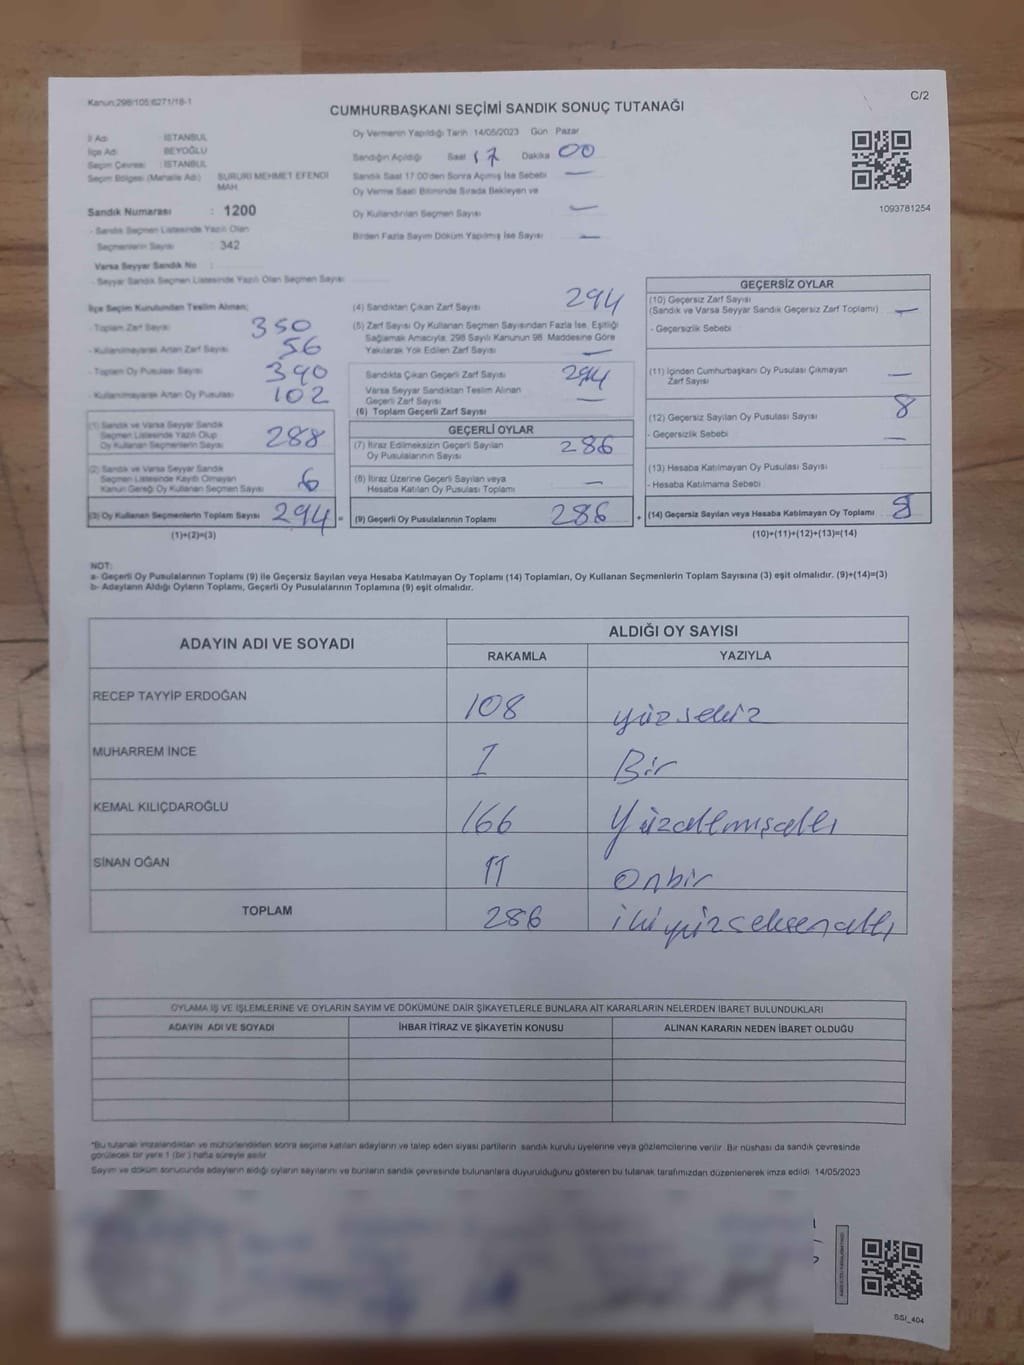 Kanun:298/105;6271/18-1
C/2
CUMHURBAŞKANI SEÇİMİ SANDIK SONUÇ TUTANAĞI
İl Adı : İSTANBUL
İlçe Adı : BEYOĞLU
Seçim Çevresi : İSTANBUL
Seçim Bölgesi (Mahalle Adı) : SURURİ MEHMET EFENDİ MAH.
Sandık Numarası : 1200
- Sandık Seçmen Listesinde Yazılı Olan
Seçmenlerin Sayısı : 342
Varsa Seyyar Sandık No :
- Seyyar Sandık Seçmen Listesinde Yazılı Olan Seçmen Sayısı:
Oy Vermenin Yapıldığı Tarih :14/05/2023 Gün Pazar
Sandığın Açıldığı Saat 17 Dakika 00
Sandık Saat 17:00'den Sonra Açılmış İse Sebebi —
Oy Verme Saati Bitiminde Sırada Bekleyen ve
Oy Kullandırılan Seçmen Sayısı —
Birden Fazla Sayım Döküm Yapılmış İse Sayısı —
1093781254
İlçe Seçim Kurulundan Teslim Alınan;
- Toplam Zarf Sayısı 350
- Kullanılmayarak Artan Zarf Sayısı 56
- Toplam Oy Pusulası Sayısı 390
- Kullanılmayarak Artan Oy Pusulası 102
(1) Sandık ve Varsa Seyyar Sandık
Seçmen Listesinde Yazılı Olup
Oy Kullanan Seçmenlerin Sayısı 288
(2) Sandık ve Varsa Seyyar Sandık
Seçmen Listesinde Kayıtlı Olmayan
Kanun Gereği Oy Kullanan Seçmen Sayısı 6
(3) Oy Kullanan Seçmenlerin Toplam Sayısı 294 =
(1)+(2)=(3)
(4) Sandıktan Çıkan Zarf Sayısı 294
(5) Zarf Sayısı Oy Kullanan Seçmen Sayısından Fazla İse, Eşitliği
Sağlamak Amacıyla, 298 Sayılı Kanunun 98. Maddesine Göre
Yakılarak Yok Edilen Zarf Sayısı —
Sandıkta Çıkan Geçerli Zarf Sayısı 294
Varsa Seyyar Sandıktan Teslim Alınan
Geçerli Zarf Sayısı —
(6) Toplam Geçerli Zarf Sayısı
GEÇERLİ OYLAR
(7) İtiraz Edilmeksizin Geçerli Sayılan
Oy Pusulalarının Sayısı 286
(8) İtiraz Üzerine Geçerli Sayılan veya
Hesaba Katılan Oy Pusulası Toplamı —
(9) Geçerli Oy Pusulalarının Toplamı 286 +
GEÇERSİZ OYLAR
(10) Geçersiz Zarf Sayısı
(Sandık ve Varsa Seyyar Sandık Geçersiz Zarf Toplamı) —
- Geçersizlik Sebebi :
(11) İçinden Cumhurbaşkanı Oy Pusulası Çıkmayan
Zarf Sayısı —
(12) Geçersiz Sayılan Oy Pusulası Sayısı 8
- Geçersizlik Sebebi : —
(13) Hesaba Katılmayan Oy Pusulası Sayısı
- Hesaba Katılmama Sebebi :
(14) Geçersiz Sayılan veya Hesaba Katılmayan Oy Toplamı 8
(10)+(11)+(12)+(13)=(14)
NOT:
a- Geçerli Oy Pusulalarının Toplamı (9) ile Geçersiz Sayılan veya Hesaba Katılmayan Oy Toplamı (14) Toplamları, Oy Kullanan Seçmenlerin Toplam Sayısına (3) eşit olmalıdır. (9)+(14)=(3)
b- Adayların Aldığı Oyların Toplamı, Geçerli Oy Pusulalarının Toplamına (9) eşit olmalıdır.
ADAYIN ADI VE SOYADI ALDIĞI OY SAYISI
RAKAMLA YAZIYLA
RECEP TAYYİP ERDOĞAN 108 yüzsekiz
MUHARREM İNCE 1 Bir
KEMAL KILIÇDAROĞLU 166 Yüzaltmışaltı
SİNAN OĞAN 11 Onbir
TOPLAM 286 ikiyüzseksenaltı
OYLAMA İŞ VE İŞLEMLERİNE VE OYLARIN SAYIM VE DÖKÜMÜNE DAİR ŞİKAYETLERLE BUNLARA AİT KARARLARIN NELERDEN İBARET BULUNDUKLARI
ADAYIN ADI VE SOYADI İHBAR İTİRAZ VE ŞİKAYETİN KONUSU ALINAN KARARIN NEDEN İBARET OLDUĞU
*Bu tutanak imzalandıktan ve mühürlendikten sonra seçime katılan adayların ve talep eden siyasi partilerin sandık kurulu üyelerine veya gözlemcilerine verilir. Bir nüshası da sandık çevresinde
görülecek bir yere 1 (bir) hafta süreyle asılır.
Sayım ve döküm sonucunda adayların aldığı oyların sayılarını ve bunların sandık çevresinde bulunanlara duyurulduğunu gösteren bu tutanak tarafımızdan düzenlenerek imza edildi. 14/05/2023
SSI_404